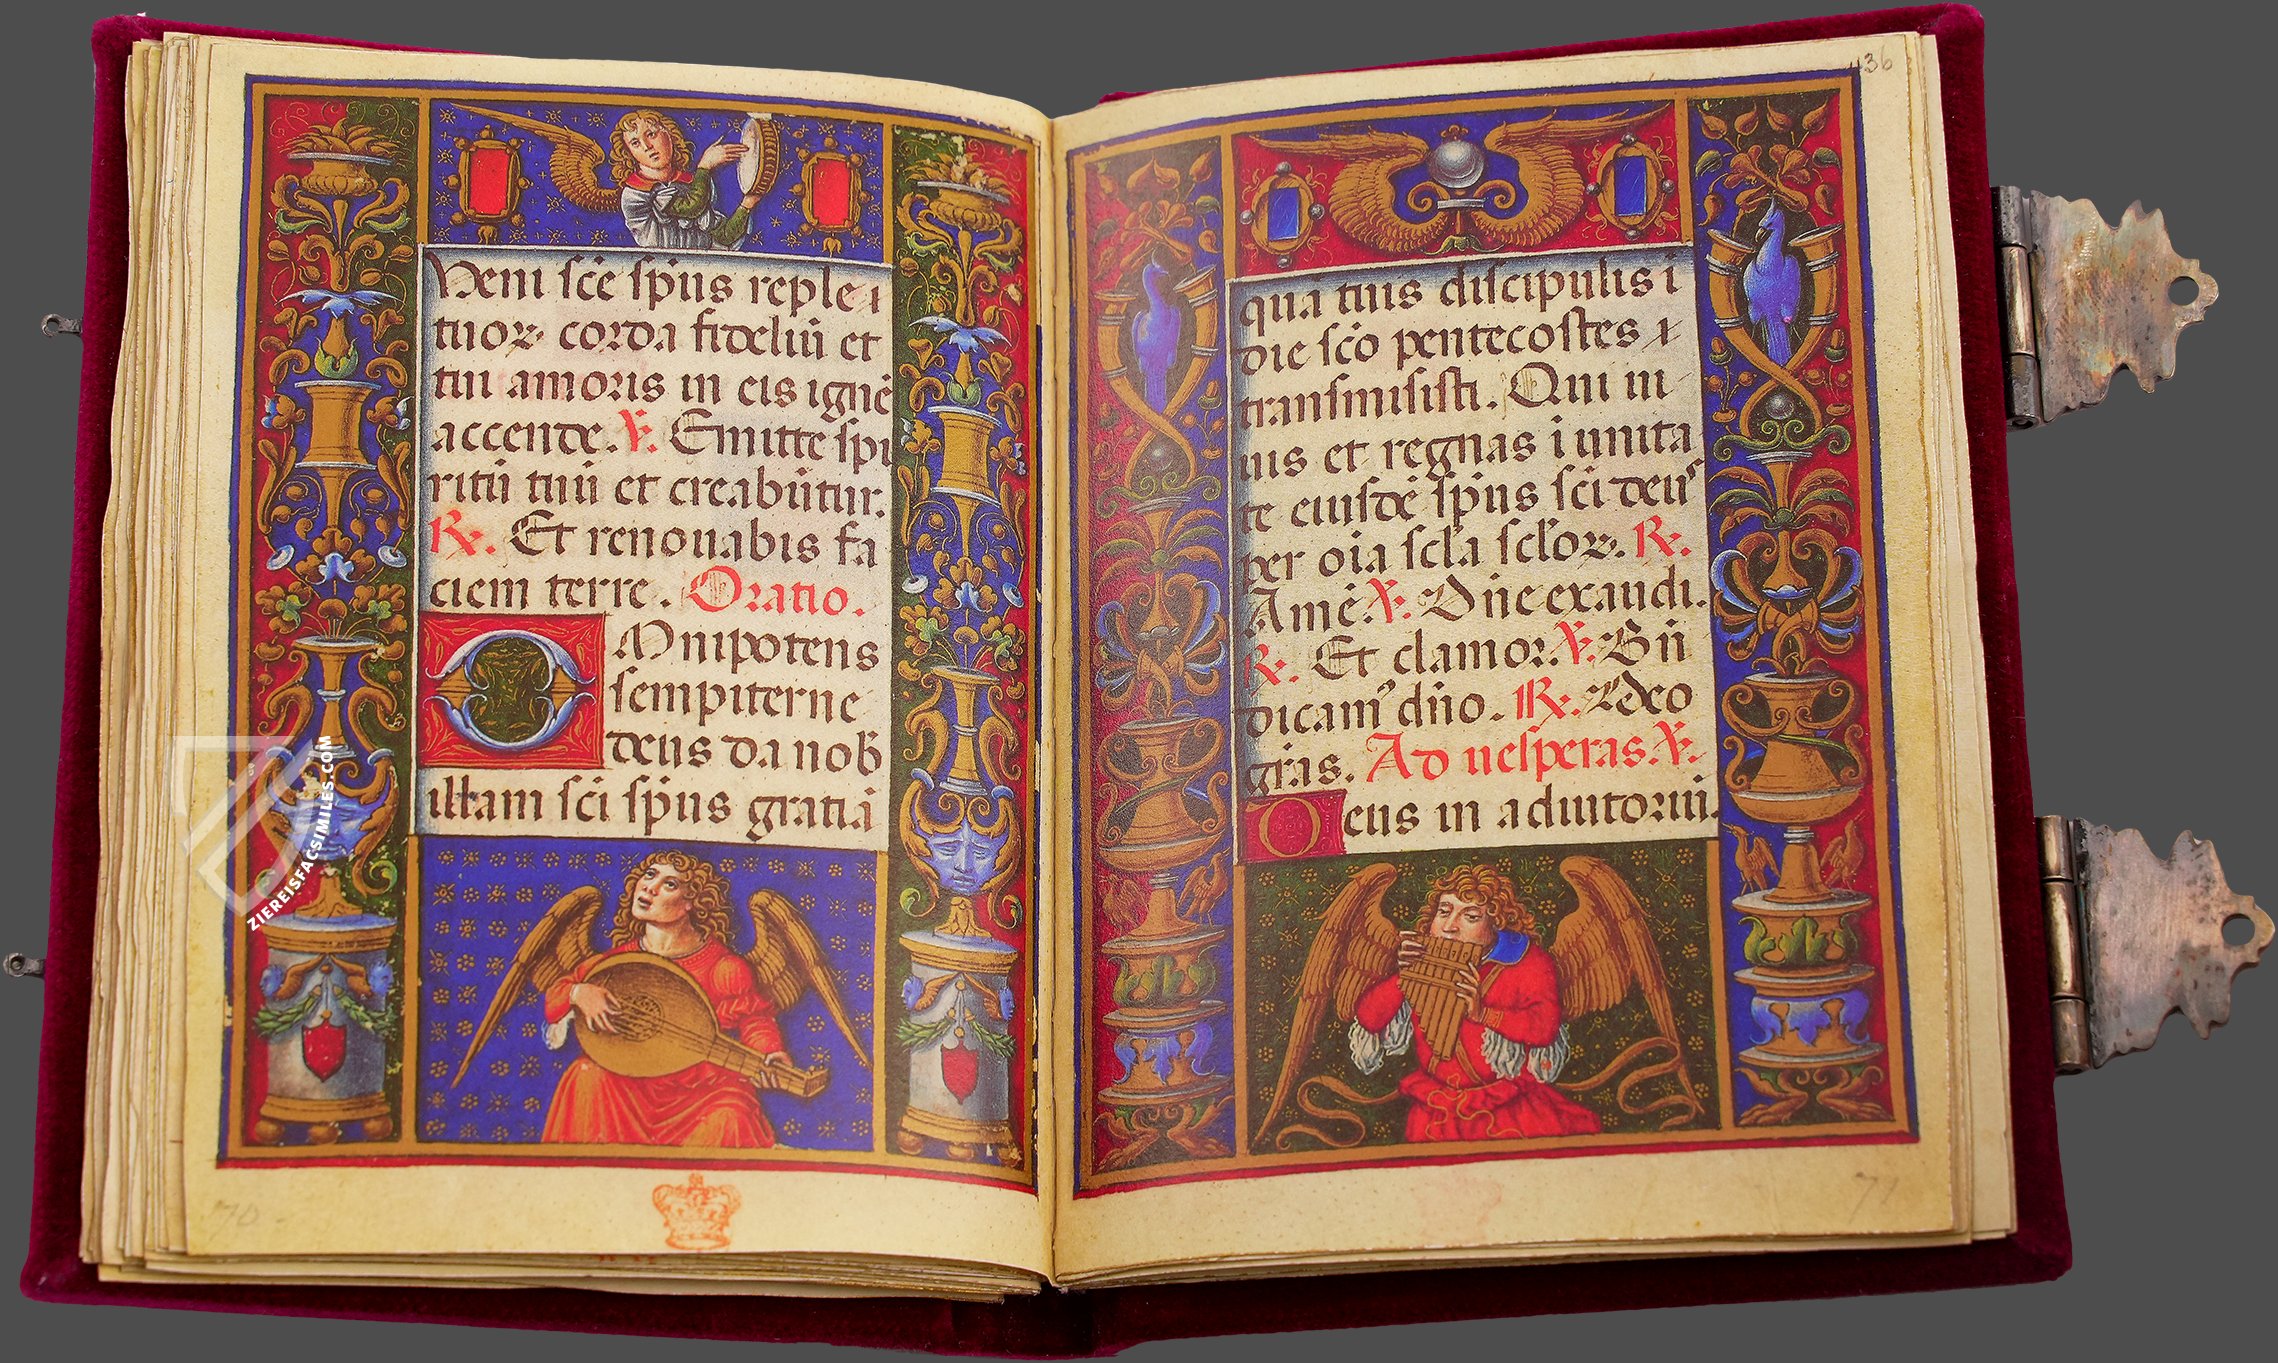 Veni sc̄e sp̄us reple ⁊
tuoꝝ corda fideliū et
tui amoris in eis ignē
accende. ℣. Emitte spi
ritū tuū et creabūtur.
℟. Et renouabis fa
ciem terre. Oratio.
OMnipotens
sempiterne
deus da nob̄
illam sc̄i sp̄us gratiā
70
ZIEREISFACSIMILES.COM
136
qua tuis discipulis ī
die sc̄o pentecostes
transmisisti. Qui ui
uis et regnas ī unita
te eiusdē sp̄us sc̄i deus
per oīa scl̄a scl̄oꝝ. ℟.
Amē. ℣. Dn̄e exaudi.
℟. Et clamor. ℣. Bn̄
dicamꝰ dn̄o. ℟. Deo
gr̄as. Ad uesperas. ℣.
Deus in adiutoriū.
71